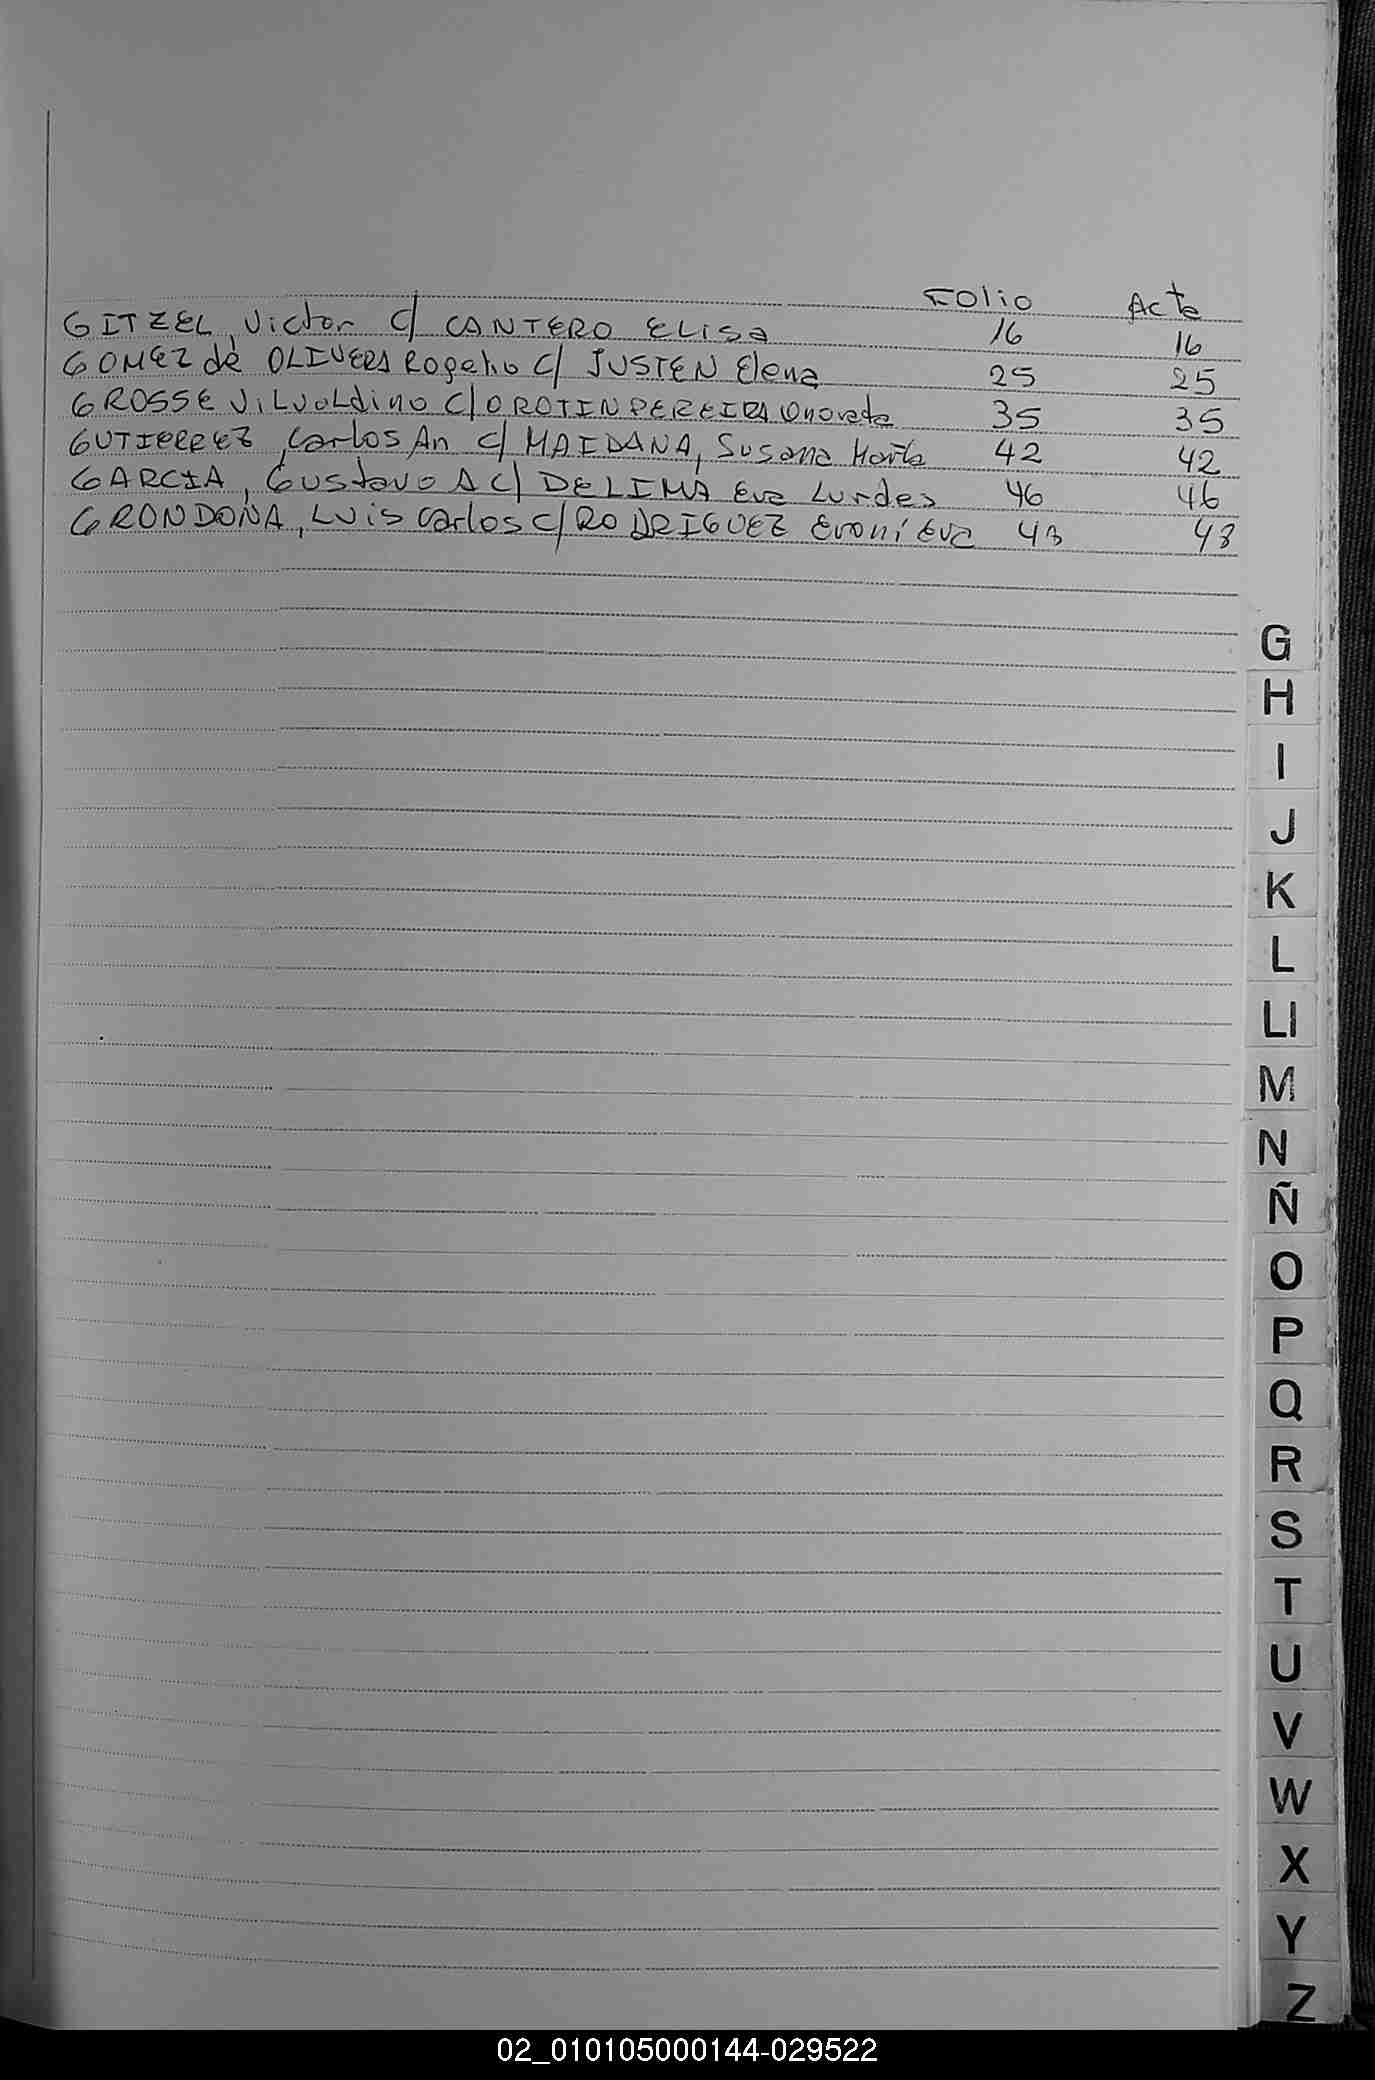 Folio Acta
GITZEL, Victor C/ CANTERO ELisa 16 16
GOMEZ de OLIVERA Rogelio C/ JUSTEN Elena 25 25
GROSSE ViLvoLdino C/ OROTIN PEREIRA Onorata 35 35
GUTIERREZ, Carlos An C/ MAIDANA, Susana Marta 42 42
GARCIA, Gustavo A C/ DE LIMA Eva Lurdes 46 46
GRONDONA, Luis Carlos C/ RODRIGUEZ Eroní Eva 48
G
H
I
J
K
L
Ll
M
N
Ñ
O
P
Q
R
S
T
U
V
W
X
Y
Z
02_010105000144-029522